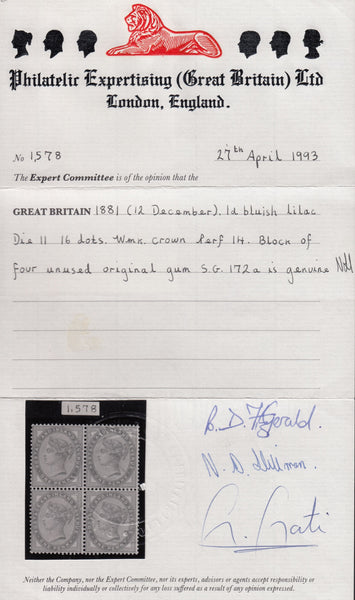 Philatelic Expertising (Great Britain) Ltd
London, England.
No 1,578 27th April 1993
The Expert Committee is of the opinion that the
GREAT BRITAIN 1881 (12 December). 1d bluish lilac
Die 11 16 dots. Wmk. crown Perf 14. Block of
four unused original gum S.G. 172a is genuine
1,578
B. D. Fitzgerald.
Neither the Company, nor the Expert Committee, nor its experts, advisors or agents accept responsibility or
liability individually or collectively for any loss suffered as a result of any opinion expressed.